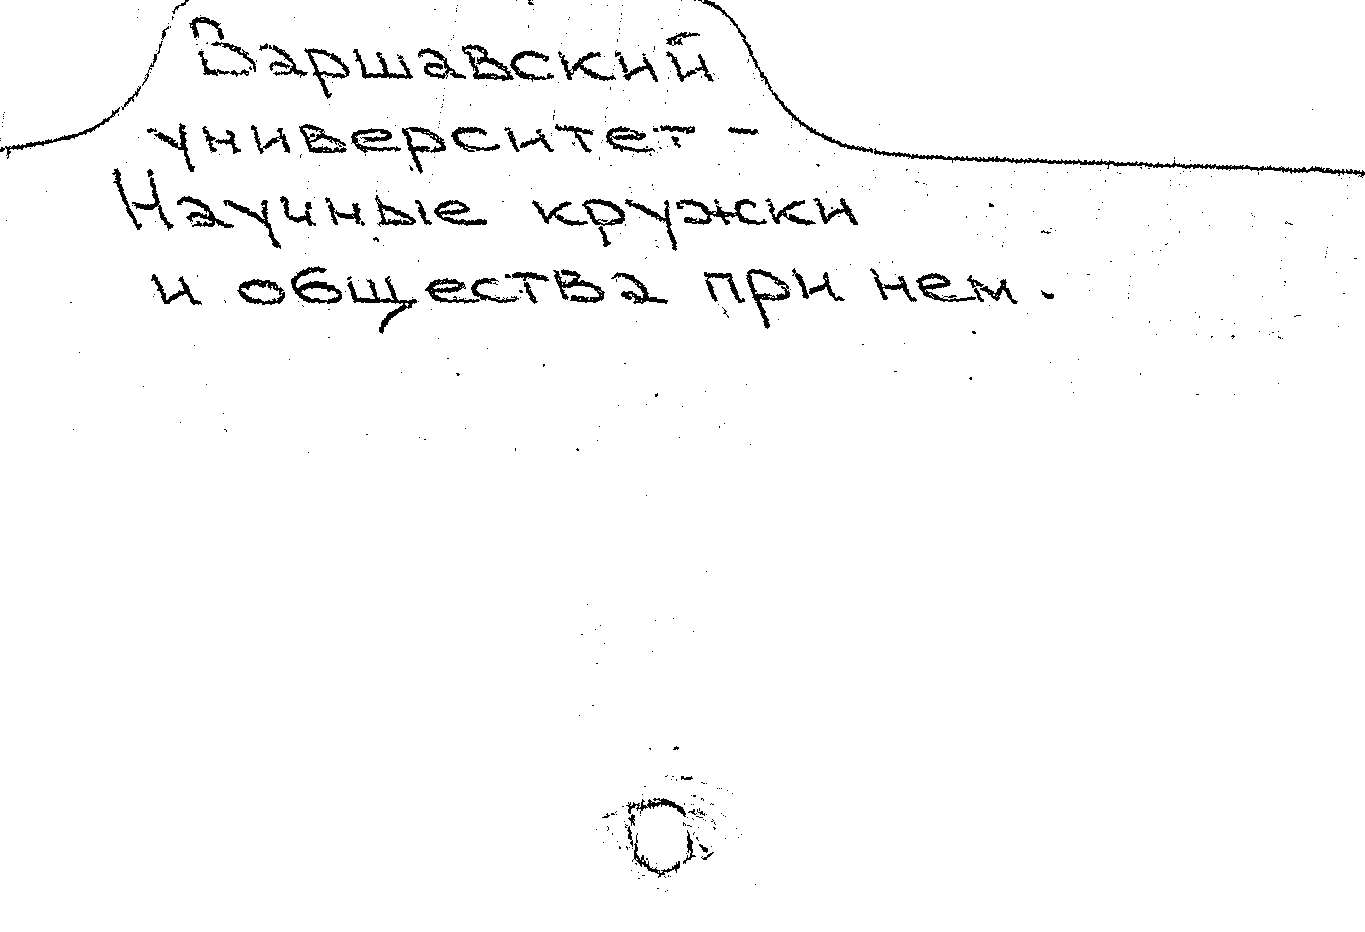 Варшавский
университет -
Научные кружки
и общества при нем.